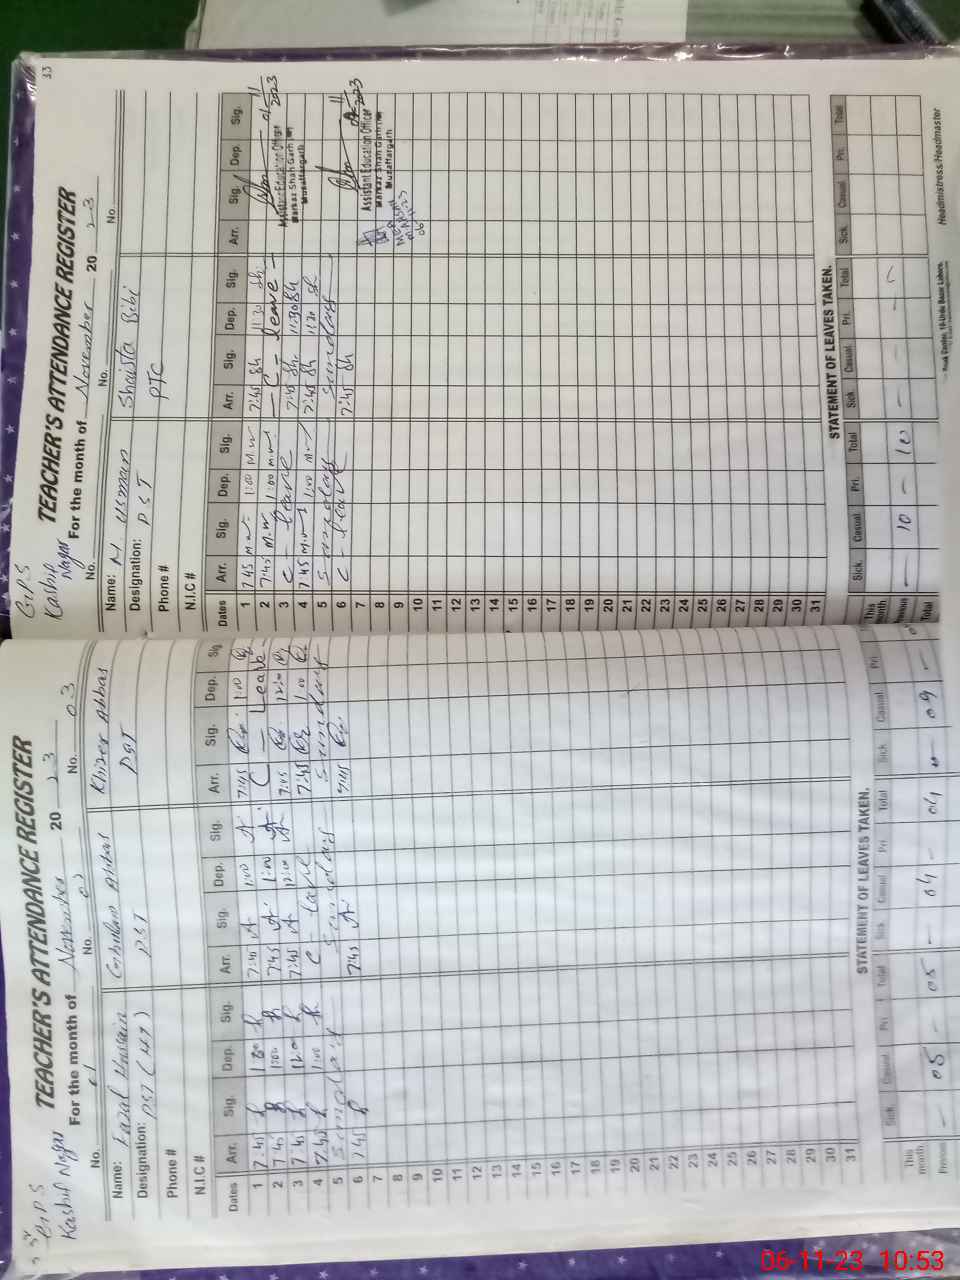 33
GPS
Kashif
Nagar
TEACHER'S ATTENDANCE REGISTER
For the month of November 2023
No. No. No.
Name: M. Usman Shaista Bibi
Designation: PST PTC
Phone #
N.I.C #
Dates Arr. Sig. Dep. Sig. Arr. Sig. Dep. Sig. Arr. Sig. Dep. Sig.
1 7:45 M.W 1:00 M.W 7:45 Sh 11:30 Sh. 01/11/2023
2 7:45 M.W 1:00 M.W — C — leave —
3 C — leave 7:45 Sh. 11:30 Sh
4 7:45 M.W 1:00 M.W 7:45 Sh 11:30 Sh
5 Sunday Sunday
6 C — leave 7:45 Sh
Assistant Education Officer
Markaz Shah Garh
Muzaffargarh
Assistant Education Officer
Markaz Shah Garh
Muzaffargarh
7
8
9
10
11
12
13
14
15
16
17
18
19
20
21
22
23
24
25
26
27
28
29
30
31
STATEMENT OF LEAVES TAKEN.
Sick Casual Pri. Total Sick Casual Pri. Total Sick Casual Pri. Total
This month
Previous — 10 — 10 — — — —
Total
Headmistress/Headmaster
34
GPS
Kashif Nagar
TEACHER'S ATTENDANCE REGISTER
For the month of November 2023
No. 01 No. 02 No. 03
Name: Fazal Hussain Ghulam Abbas Khizer Abbas
Designation: PST (HT) PST PST
Phone #
N.I.C #
Dates Arr. Sig. Dep. Sig. Arr. Sig. Dep. Sig. Arr. Sig. Dep. Sig
1 7:45 1:00 7:45 1:00 7:45 1:00
2 7:45 1:00 7:45 1:00 C — Leave
3 7:45 12:00 7:45 12:00 7:45 12:00
4 7:45 1:00 C — leave 7:45 1:00
5 Sunday Sunday Sunday
6 7:45 7:45 7:45
7
8
9
10
11
12
13
14
15
16
17
18
19
20
21
22
23
24
25
26
27
28
29
30
31
STATEMENT OF LEAVES TAKEN.
Sick Casual Pri Total Sick Casual Pri Total Sick Casual Pri
This month
Previous — 05 — 05 — 04 — 04 — 09 —
06-11-23 10:53